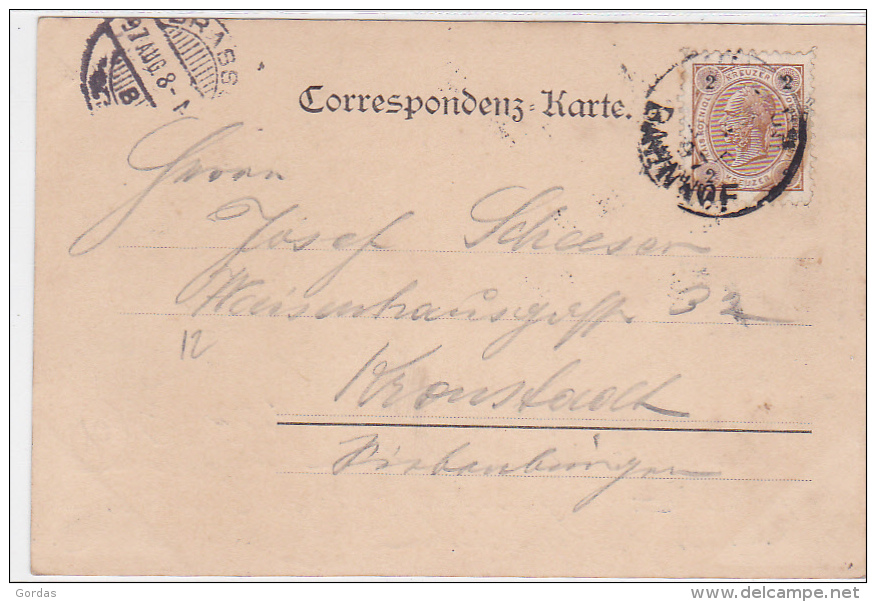 BRASS
97 AUG. 8 - A
B
Correspondenz-Karte.
2 KREUZER 2
2 KREUZER
BAHNHOF
97
Herrn
Josef Scheeser
Waisenhausgasse 32
12
Kronstadt
Siebenbürgen
Gordas
delcampe.net